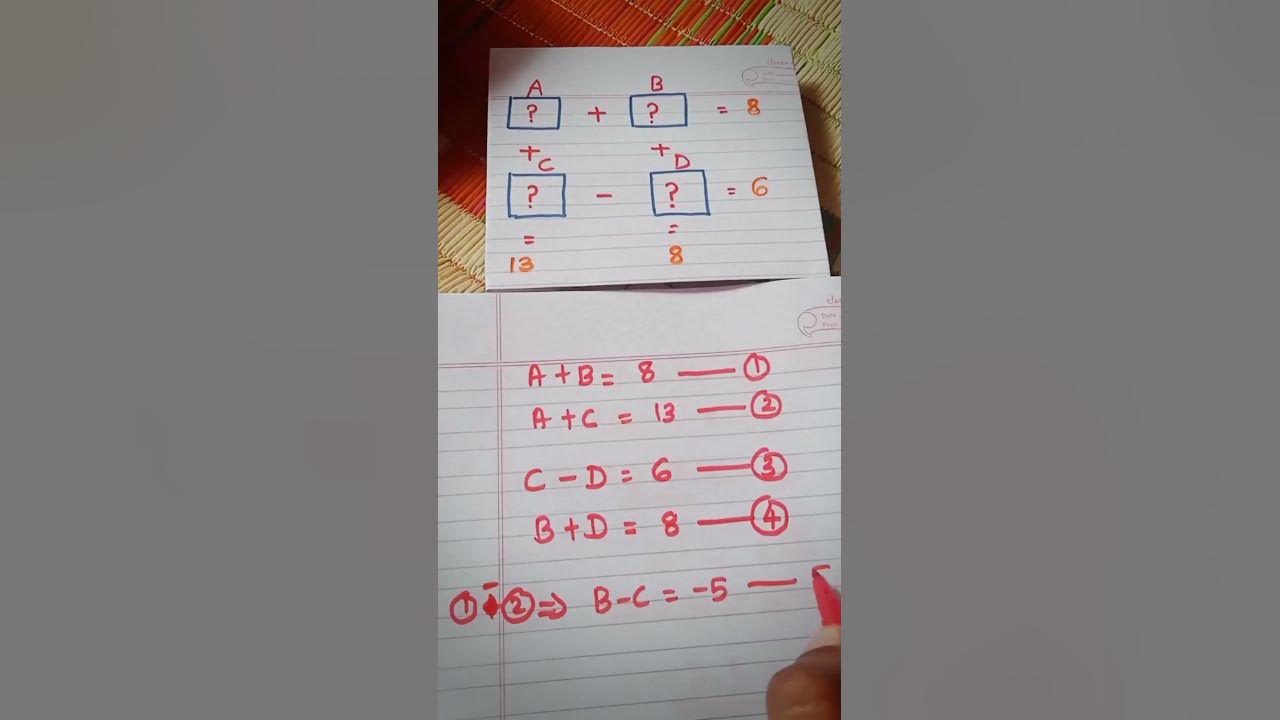 A B
? + ? = 8
+ C + D
? - ? = 6
= =
13 8
A + B = 8 — ①
A + C = 13 — ②
C - D = 6 — ③
B + D = 8 — ④
① - ② ⇒ B - C = -5 —